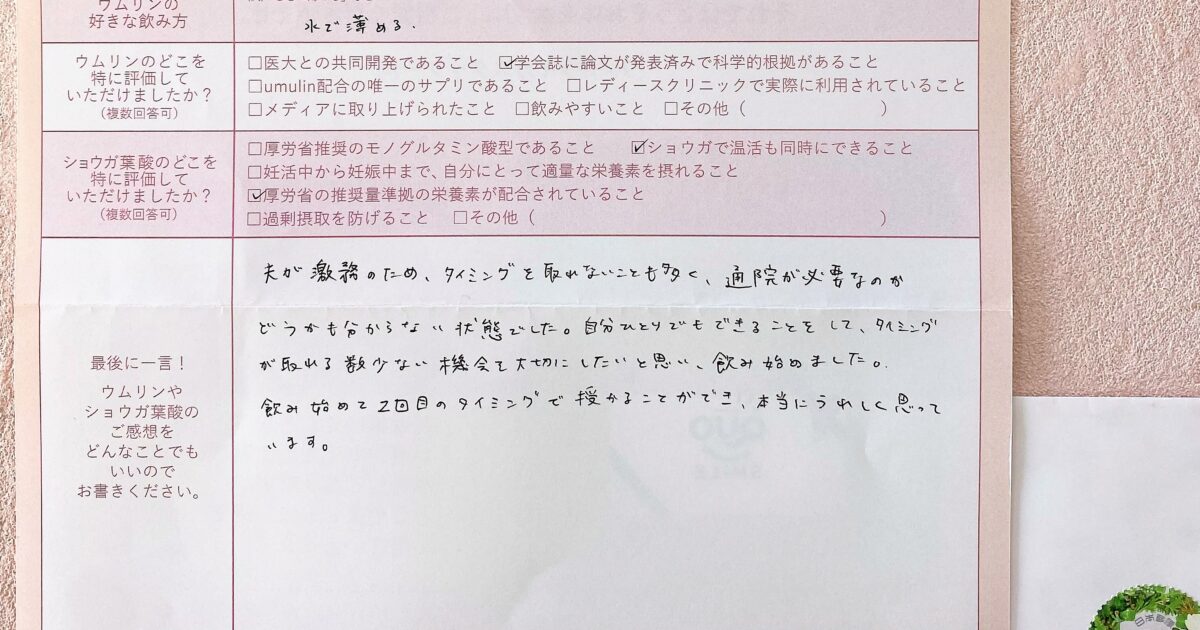 ウムリンの
好きな飲み方
水で薄める.
ウムリンのどこを
特に評価して
いただけましたか？
(複数回答可)
□医大との共同開発であること ☑学会誌に論文が発表済みで科学的根拠があること
□umulin配合の唯一のサプリであること □レディースクリニックで実際に利用されていること
□メディアに取り上げられたこと □飲みやすいこと □その他（ ）
ショウガ葉酸のどこを
特に評価して
いただけましたか？
(複数回答可)
□厚労省推奨のモノグルタミン酸型であること ☑ショウガで温活も同時にできること
□妊活中から妊娠中まで、自分にとって適量な栄養素を摂れること
☑厚労省の推奨量準拠の栄養素が配合されていること
□過剰摂取を防げること □その他（ ）
最後に一言！
ウムリンや
ショウガ葉酸の
ご感想を
どんなことでも
いいので
お書きください。
夫が激務のため、タイミングを取れないことも多く、通院が必要なのか
どうかも分からない状態でした。自分ひとりでもできることをして、タイミング
が取れる数少ない機会を大切にしたいと思い、飲み始めました。
飲み始めて2回目のタイミングで授かることができ、本当にうれしく思って
います。